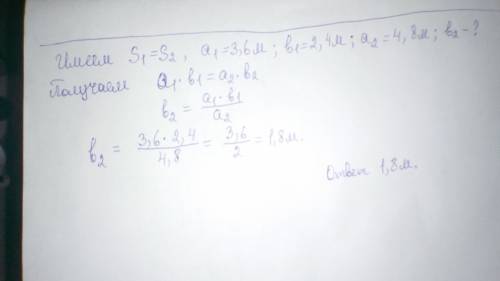 Имеем S₁=S₂, a₁=3,6м; b₁=2,4м; a₂=4,8м; b₂-?
Получаем a₁·b₁=a₂·b₂
b₂ = a₁·b₁/a₂
b₂ = 3,6·2,4/4,8 = 3,6/2 = 1,8м.
Ответ 1,8м.